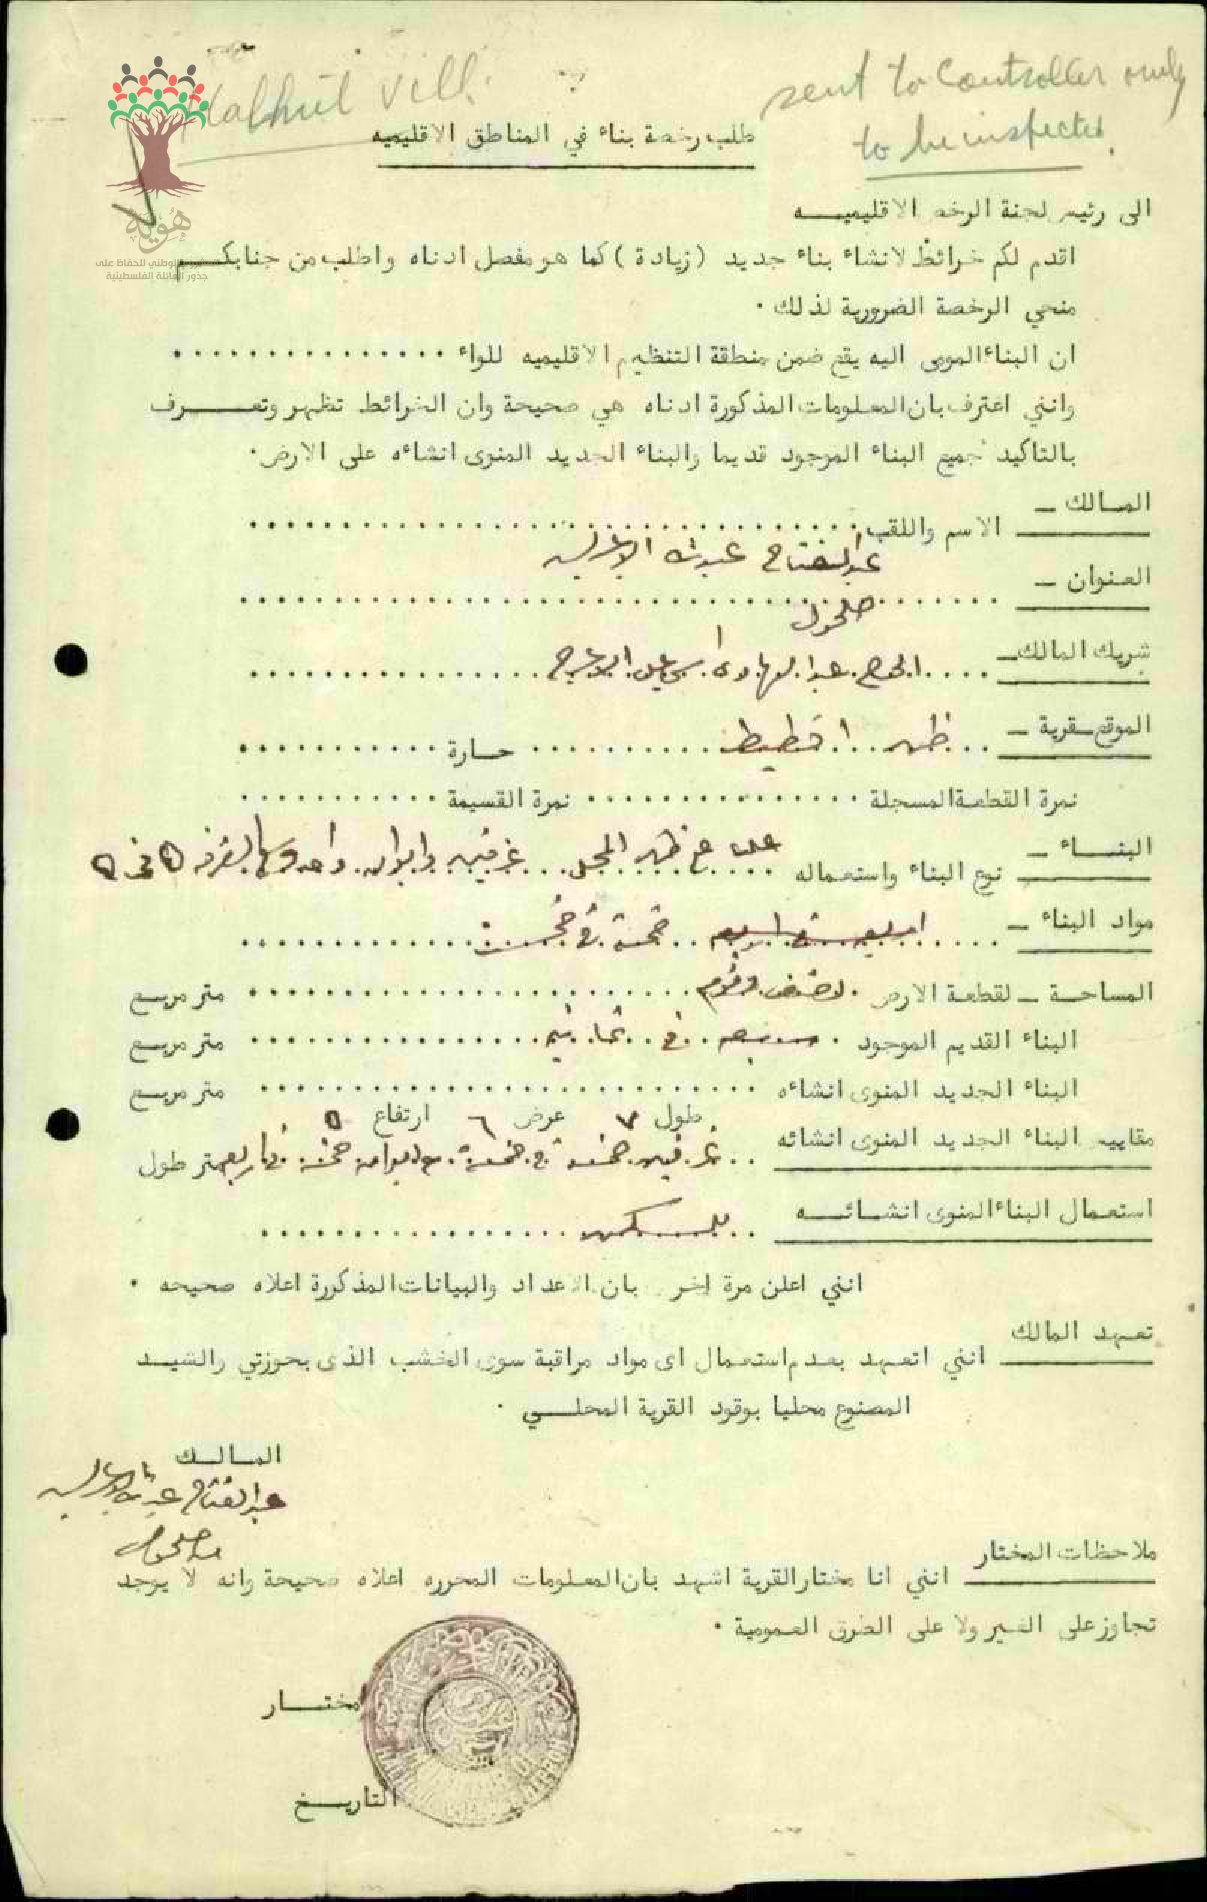 Halhul Vill.
sent to Controller only
to be inspected.
طلب رخصة بناء في المناطق الاقليميه
هوية
الوطني للحفاظ على
جذور العائلة الفلسطينية
الى رئيس لجنة الرخص الاقليميـــه
اقدم لكم خرائط لانشاء بناء جديد (زيادة) كما هو مفصل ادناه واطلب من جنابكـــم
منحي الرخصة الضرورية لذلك .
ان البناء المومى اليه يقع ضمن منطقة التنظيم الاقليميه للواء ................
وانني اعترف بان المعلومات المذكورة ادناه هي صحيحة وان الخرائط تظهر وتعـــرف
بالتاكيد جميع البناء الموجود قديما والبناء الجديد المنوى انشاءه على الارض.
المالك -
الاسم واللقب ................
عبد الفتاح عبد الله الاعرج
العنوان -
حلحول
شريك المالك - الحاج عبد الهادي اسماعيل الاعرج
الموقع - قرية - ظهر ........ حارة ............
نمرة القطعة المسجلة ............... نمرة القسيمة ...........
البنـــاء -
نوع البناء واستعماله على ظهر المحل غرفتين وايوان
مواد البناء - خمسة في خمسة
المساحة - لقطعة الارض ........ متر مربع
البناء القديم الموجود سبعه في ثمانيه متر مربع
البناء الجديد المنوى انشاءه ........ متر مربع
طول ٧ عرض ٦ ارتفاع ٥
مقاييه البناء الجديد المنوى انشائه غرفتين خمسة في خمسة وايوان خمسة في اربعه متر طول
استعمال البناء المنوى انشائـــه للسكن
انني اعلن مرة اخرى بان الاعداد والبيانات المذكورة اعلاه صحيحه .
تعهد المالك
انني اتعهد بعدم استعمال اى مواد مراقبة سوى الخشب الذى بحوزتي والشيـــد
المصنوع محليا بوقود القرية المحلـــي .
المـالـك
عبد الفتاح عبد الله الاعرج
حلحول
ملاحظات المختار
انني انا مختار القرية اشهد بان المعلومات المحرره اعلاه صحيحة وانه لا يوجد
تجاوز على الغير ولا على الطرق العمومية .
مختـــار
التاريـــخ